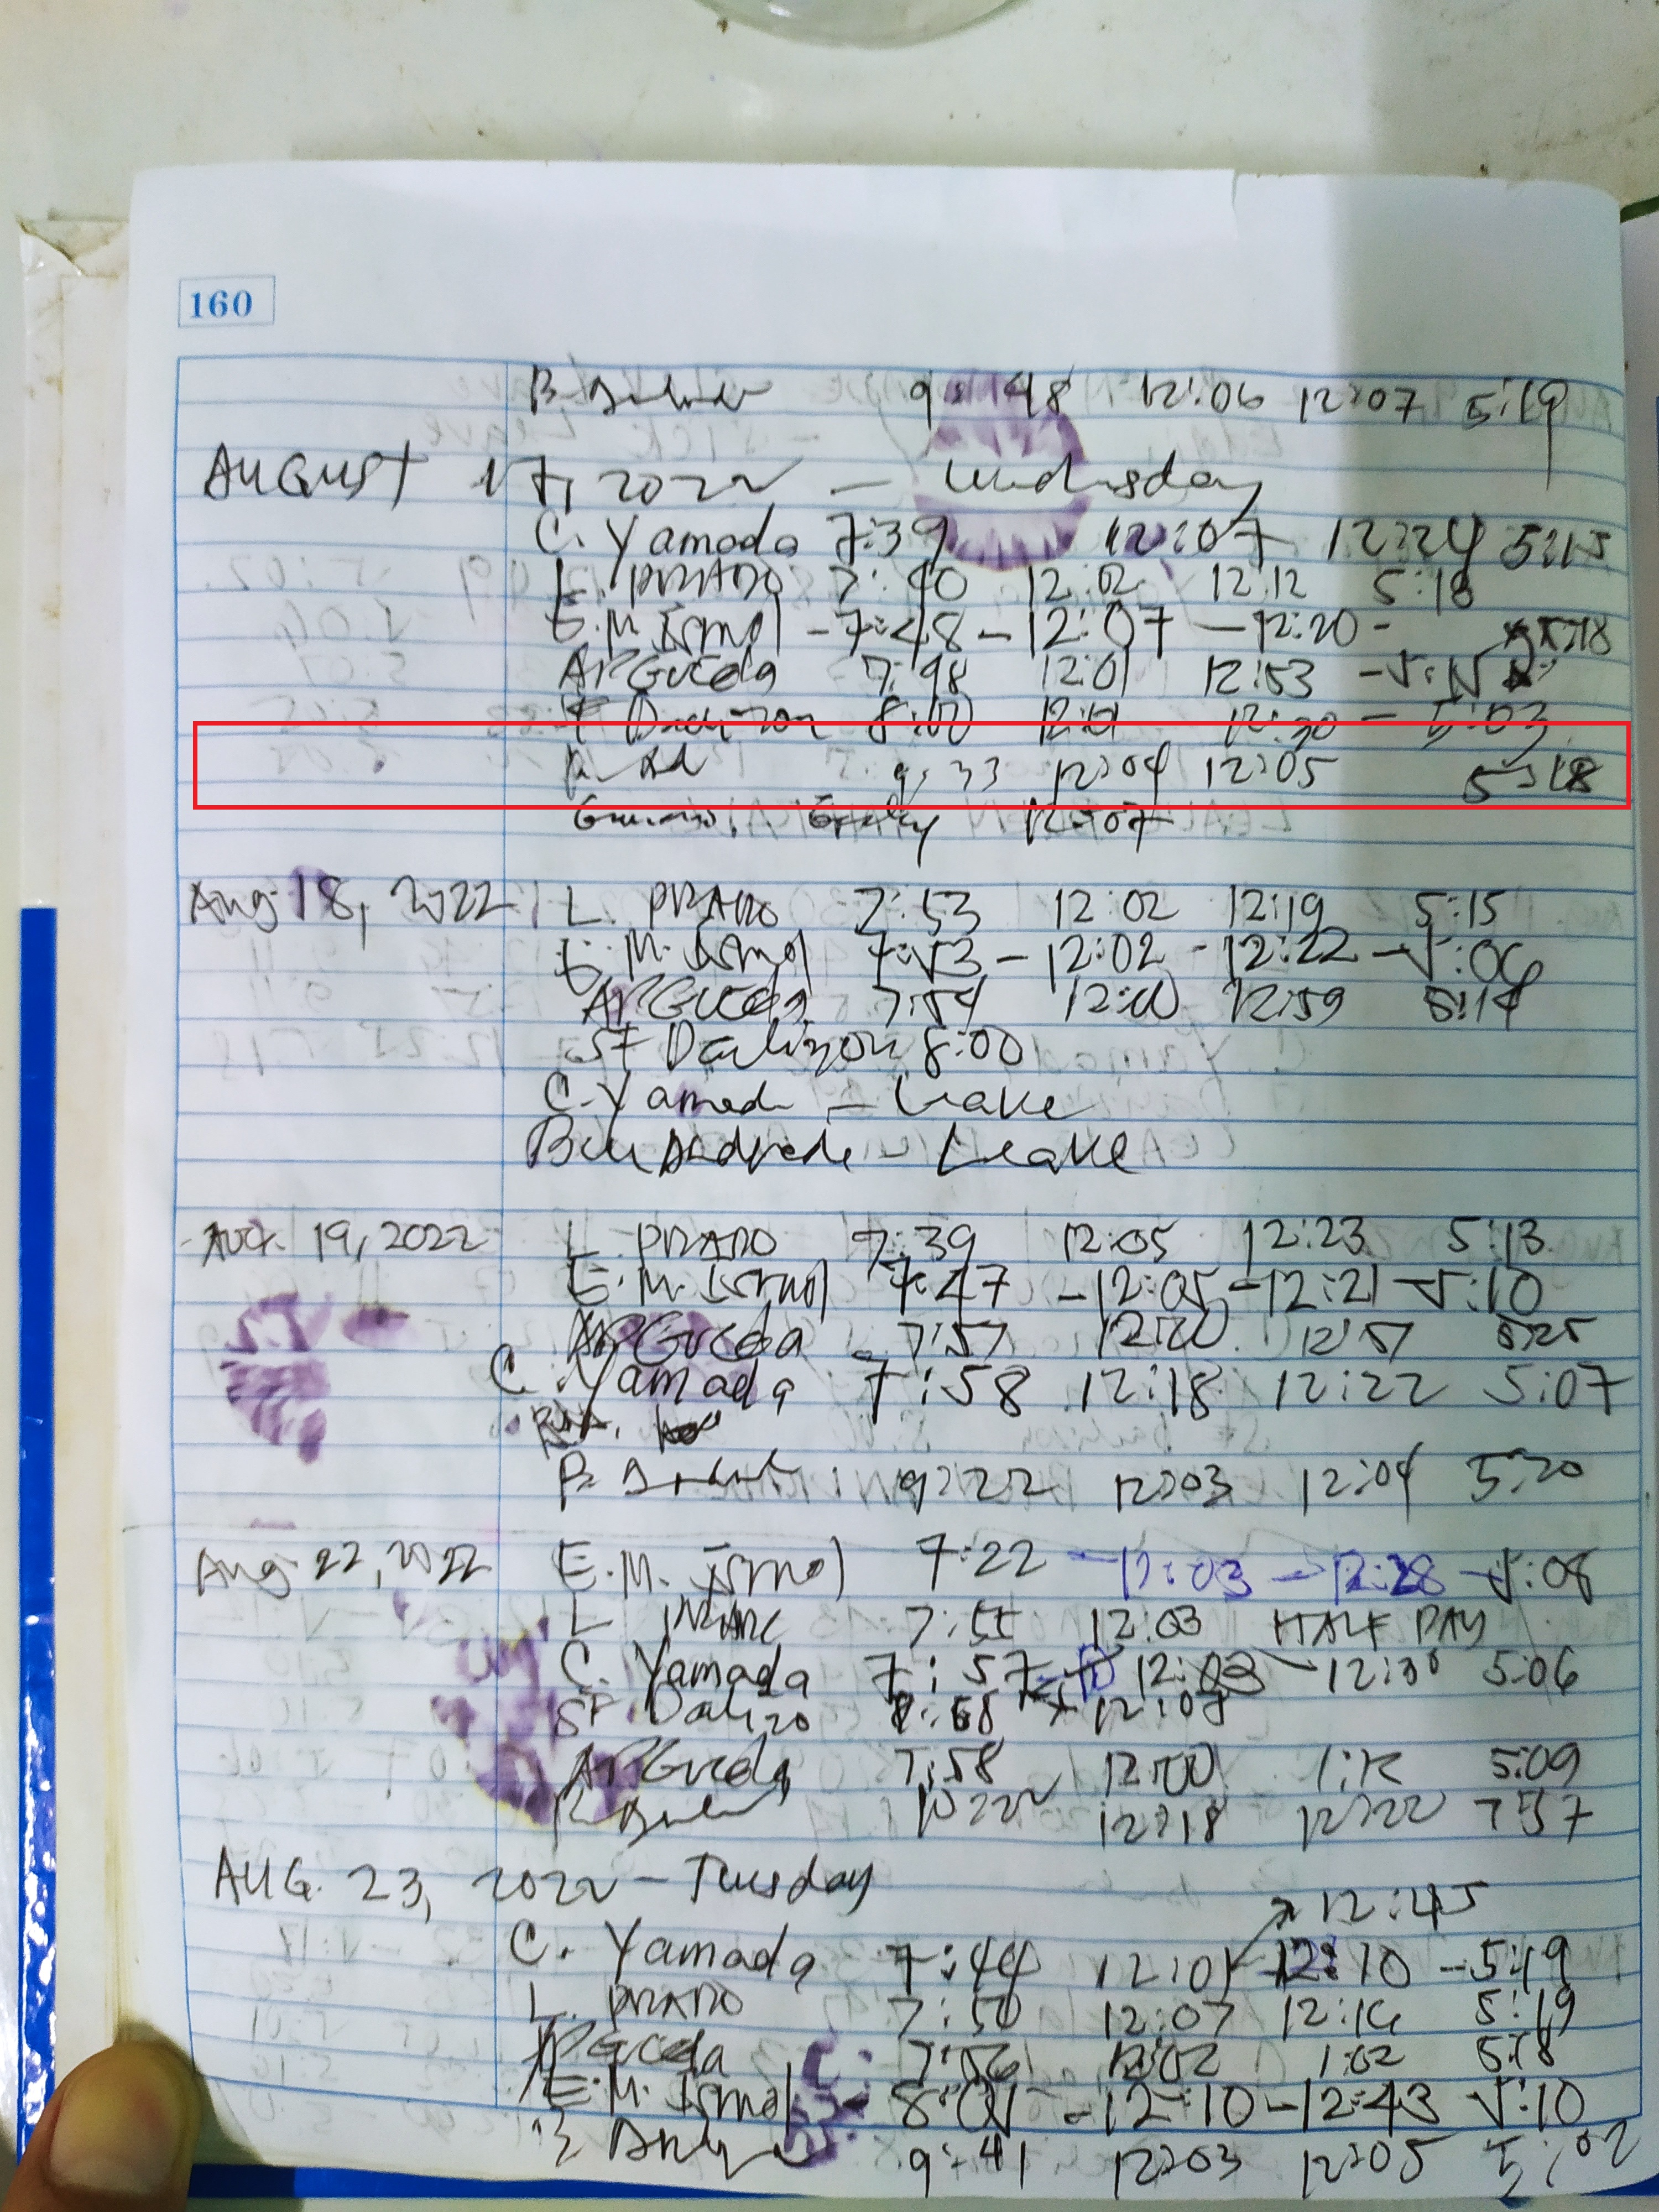 160
B. 9: 48 12:06 12:07 5:19
AUGUST 17, 2022 - Wednesday
C. Yamada 7:39 12:07 12:24 5:15
L. PRADO 7:40 12:02 12:12 5:18
E.M. Ismol - 7:48 - 12:07 - 12:20 - 5:18
APGueda 7:48 12:01 12:53 - 5:15
8:00 12:01 12:30 - 5:03
9:33 12:04 12:05 5:18
12:07
Aug 18, 2022 L. PRADO 7:53 12:02 12:19 5:15
E.M. Ismol 7:53 - 12:02 - 12:22 - 5:06
APGueda 7:54 12:00 12:59 5:14
SF 8:00
C. Yamada - Leave
Andrade - Leave
Aug. 19, 2022 L. PRADO 7:39 12:05 12:23 5:13
E.M. Ismol 7:47 - 12:05 - 12:21 - 5:10
APGueda 7:57 12:00 12:57 5:25
C. Yamada 7:58 12:18 12:22 5:07
B. 9:22 12:03 12:04 5:20
Aug 22, 2022 E.M. Ismol 7:22 - 12:03 - 12:28 - 5:08
L 7:55 12:03 HALF DAY
C. Yamada 7:57 12:03 - 12:30 5:06
SF 12:08
APGueda 7:58 12:00 1:12 5:09
10:22 12:18 12:22 7:57
AUG. 23, 2022 - Tuesday
12:45
C. Yamada 7:44 12:01 12:10 - 5:19
L. PRADO 7:50 12:07 12:16 5:19
APGueda 7:56 12:02 1:02 5:18
E.M. Ismol 8:01 - 12:10 - 12:43 5:10
9:41 12:03 12:05 5:02